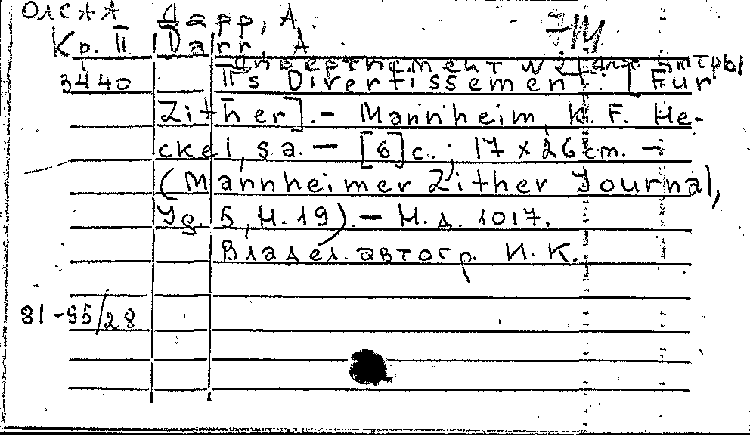 ОЛСАА Дарр, А.
Кр. II Darr, A
Дивертисмент №2 для цитры
3440 II-s Divertissement. [Für
Zither]. - Mannheim, K. F. He-
ckel, s.a. - [6] с.; 17 x 26 cm. -
(Mannheimer Zither Journal,
Jg. 5, H. 19). - Н. д. 1017.
Владел. автогр. И. К.
81-95/28